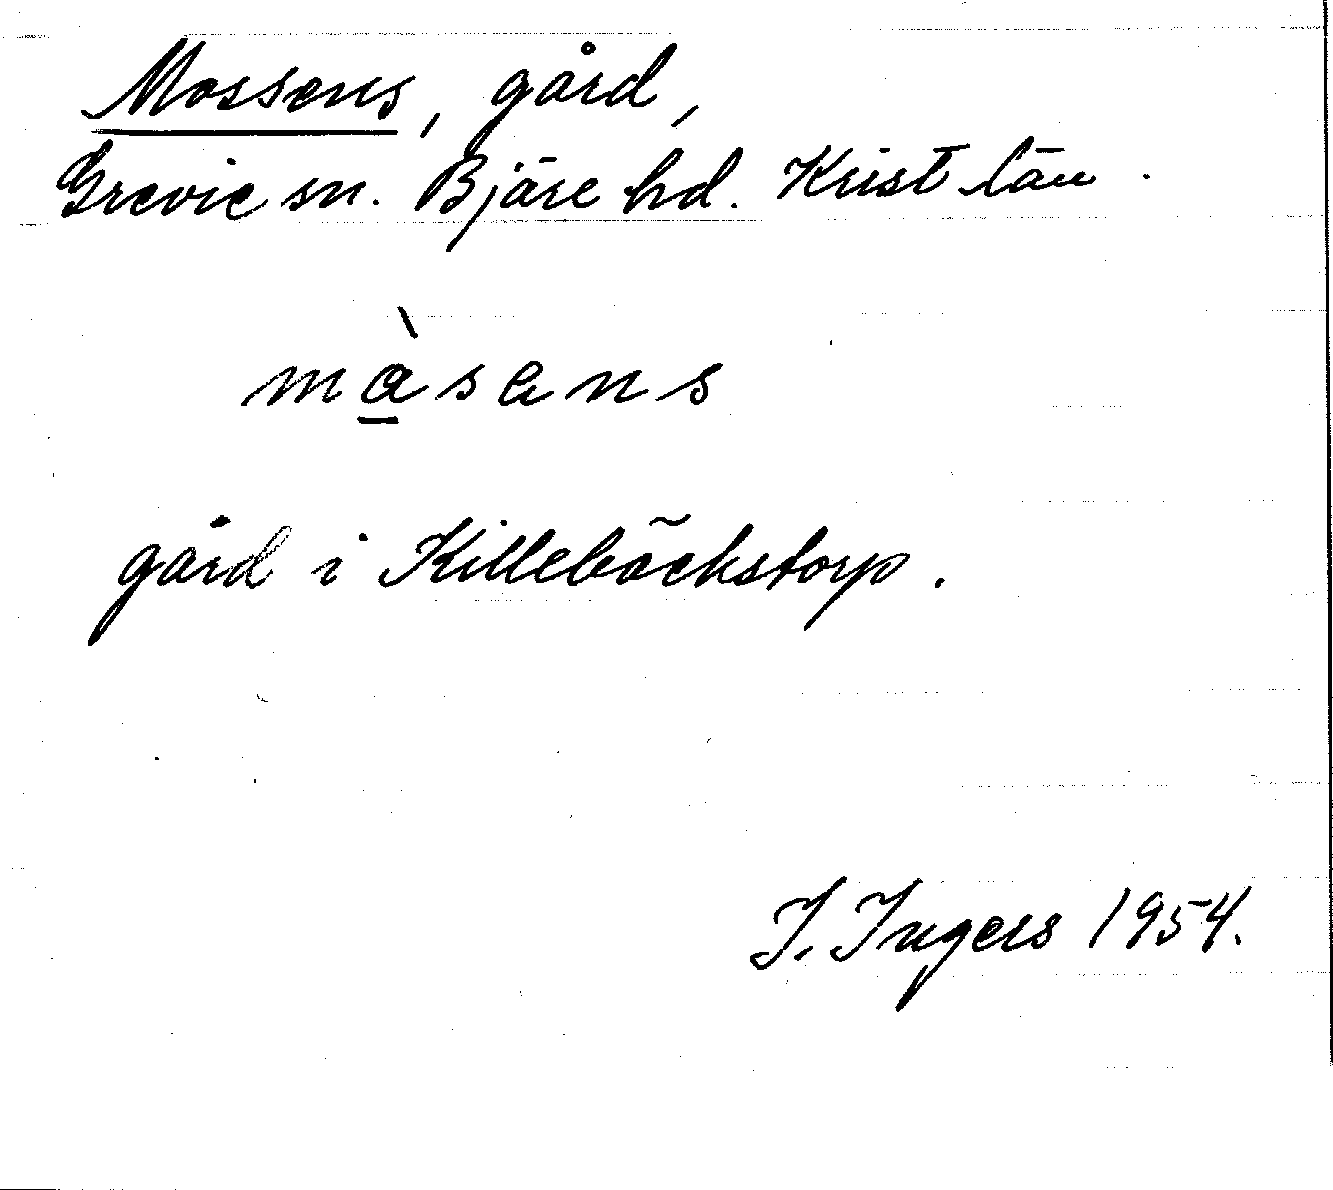 Mossens, gård,
Grevie sn. Bjäre hd. Krist län.
må̀sens
gård i Killebäckstorp.
I. Ingers 1954.